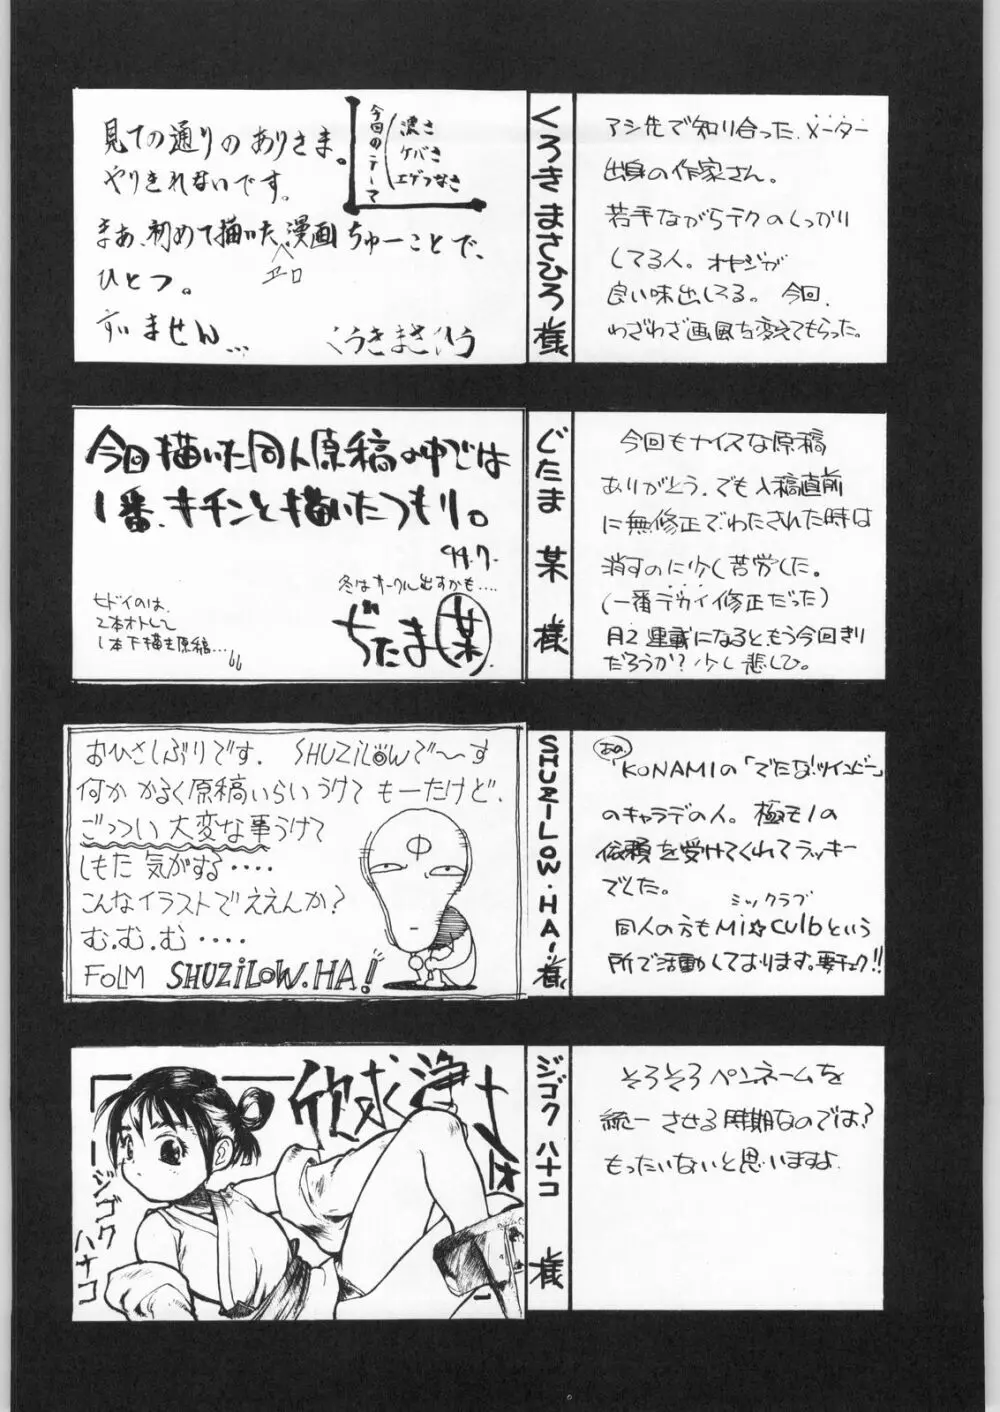 見ての通りのありさま。
やりきれないです。
まあ、初めて描いた漫画ちゅーことで、
エロ
ひとつ。
すいません...
くろきまさひろ
今回のテーマ
濃さ
ケバさ
エゲつなさ
くろきまさひろ様
アシ先で知り合った、メーター
出身の作家さん。
若手ながらテクのしっかり
してる人。オヤジが
良い味出してる。今回、
わざわざ画風を変えてもらった。
今回描いた同人原稿の中では
1番、キチンと描いたつもり。
99.7.
冬はサークル出すかも....
ヒドイのは、
2本オトして
1本下描き原稿...
ぢたま(某)
ぢたま 某 様
今回もナイスな原稿
ありがとう。でも入稿直前
に無修正でわたされた時は
消すのに少し苦労した。
(一番デカイ修正だった)
月2連載になると、もう今回きり
だろうか?少し悲しひ。
おひさしぶりです。SHUZILOWで〜す
何かかるく原稿いらいうけてもーたけど、
ごっつい大変な事うけて
しもた気がする....
こんなイラストでええんか?
む.む.む....
FOLM SHUZILOW.HA!
中
SHUZILOW.HA!様
あの
KONAMIの「でたな!ツインビー」
のキャラデの人。極モノの
依頼を受けてくれてラッキー
でした。
ミックラブ
同人の方もMi☆Culbという
所で活動しております。要チェク!!
欣求浄土
ジゴクハナコ
ジゴク ハナコ 様
そろそろペンネームを
統一させる時期なのでは?
もったいないと思いますよ